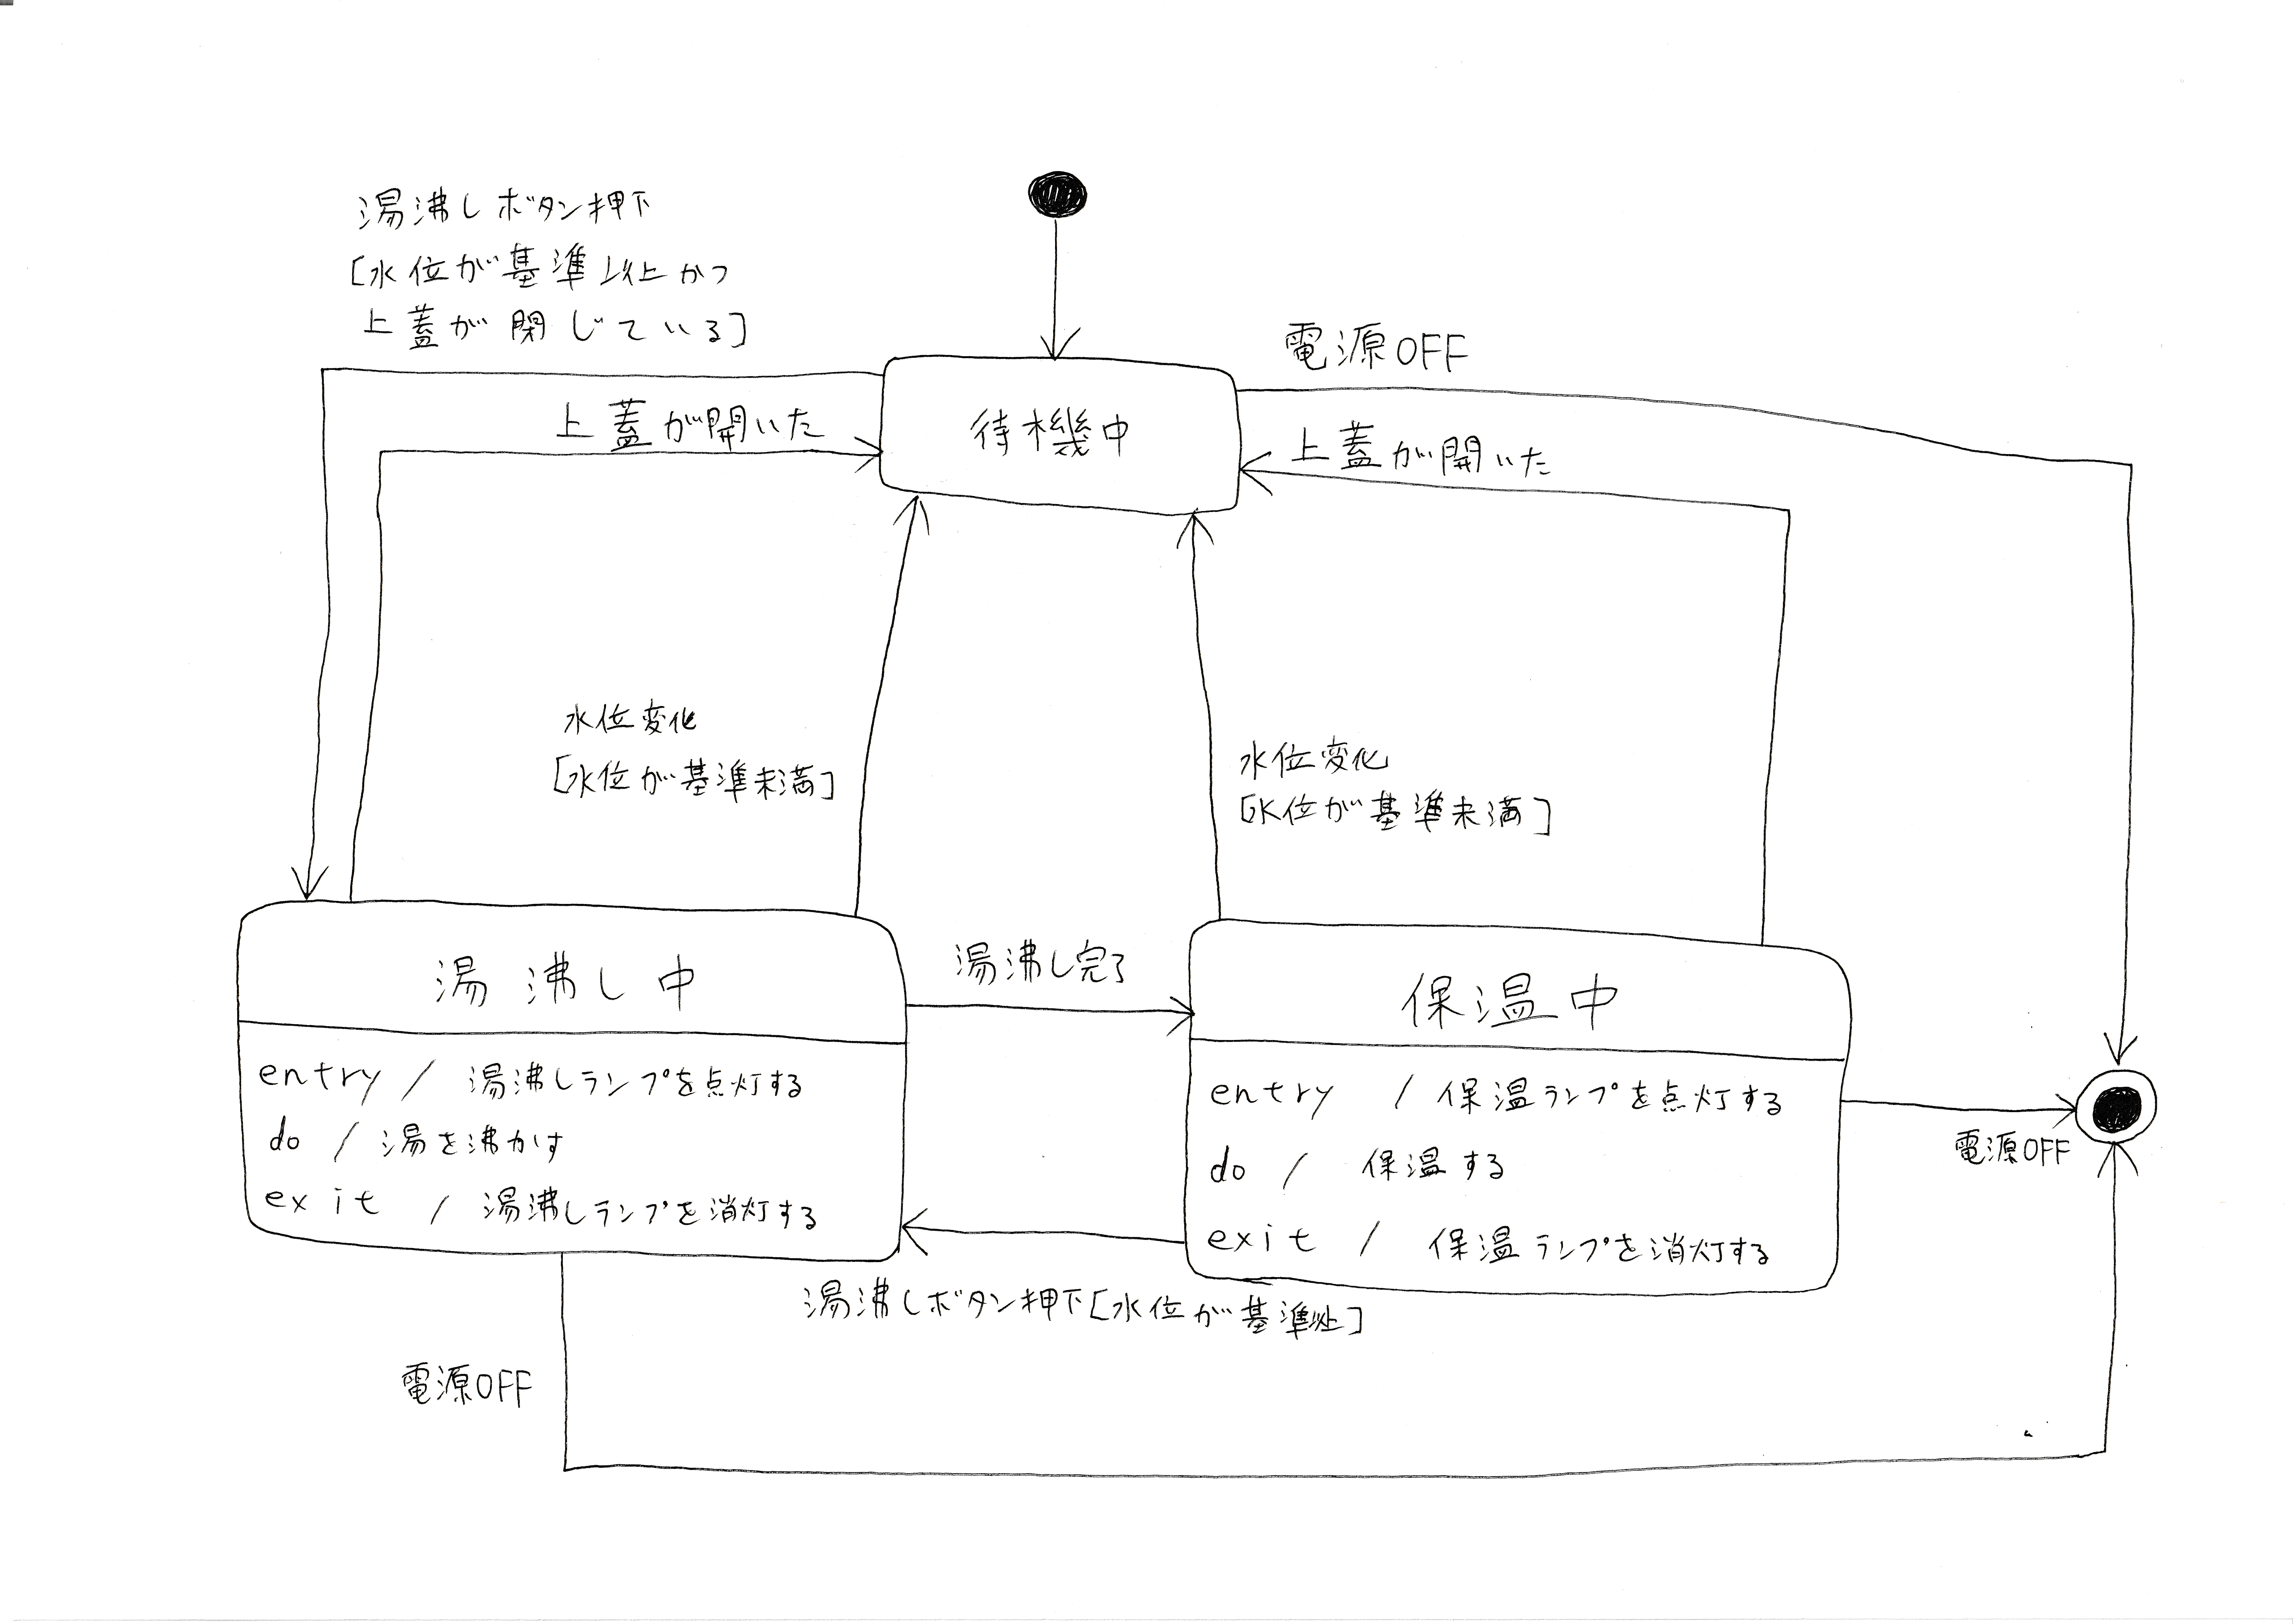 湯沸しボタン押下
[水位が基準以上かつ
上蓋が閉じている]
電源OFF
上蓋が開いた
待機中
上蓋が開いた
水位変化
[水位が基準未満]
水位変化
[水位が基準未満]
湯沸し中
湯沸し完了
保温中
entry / 湯沸しランプを点灯する
do / 湯を沸かす
exit / 湯沸しランプを消灯する
entry / 保温ランプを点灯する
do / 保温する
exit / 保温ランプを消灯する
電源OFF
湯沸しボタン押下[水位が基準以上]
電源OFF